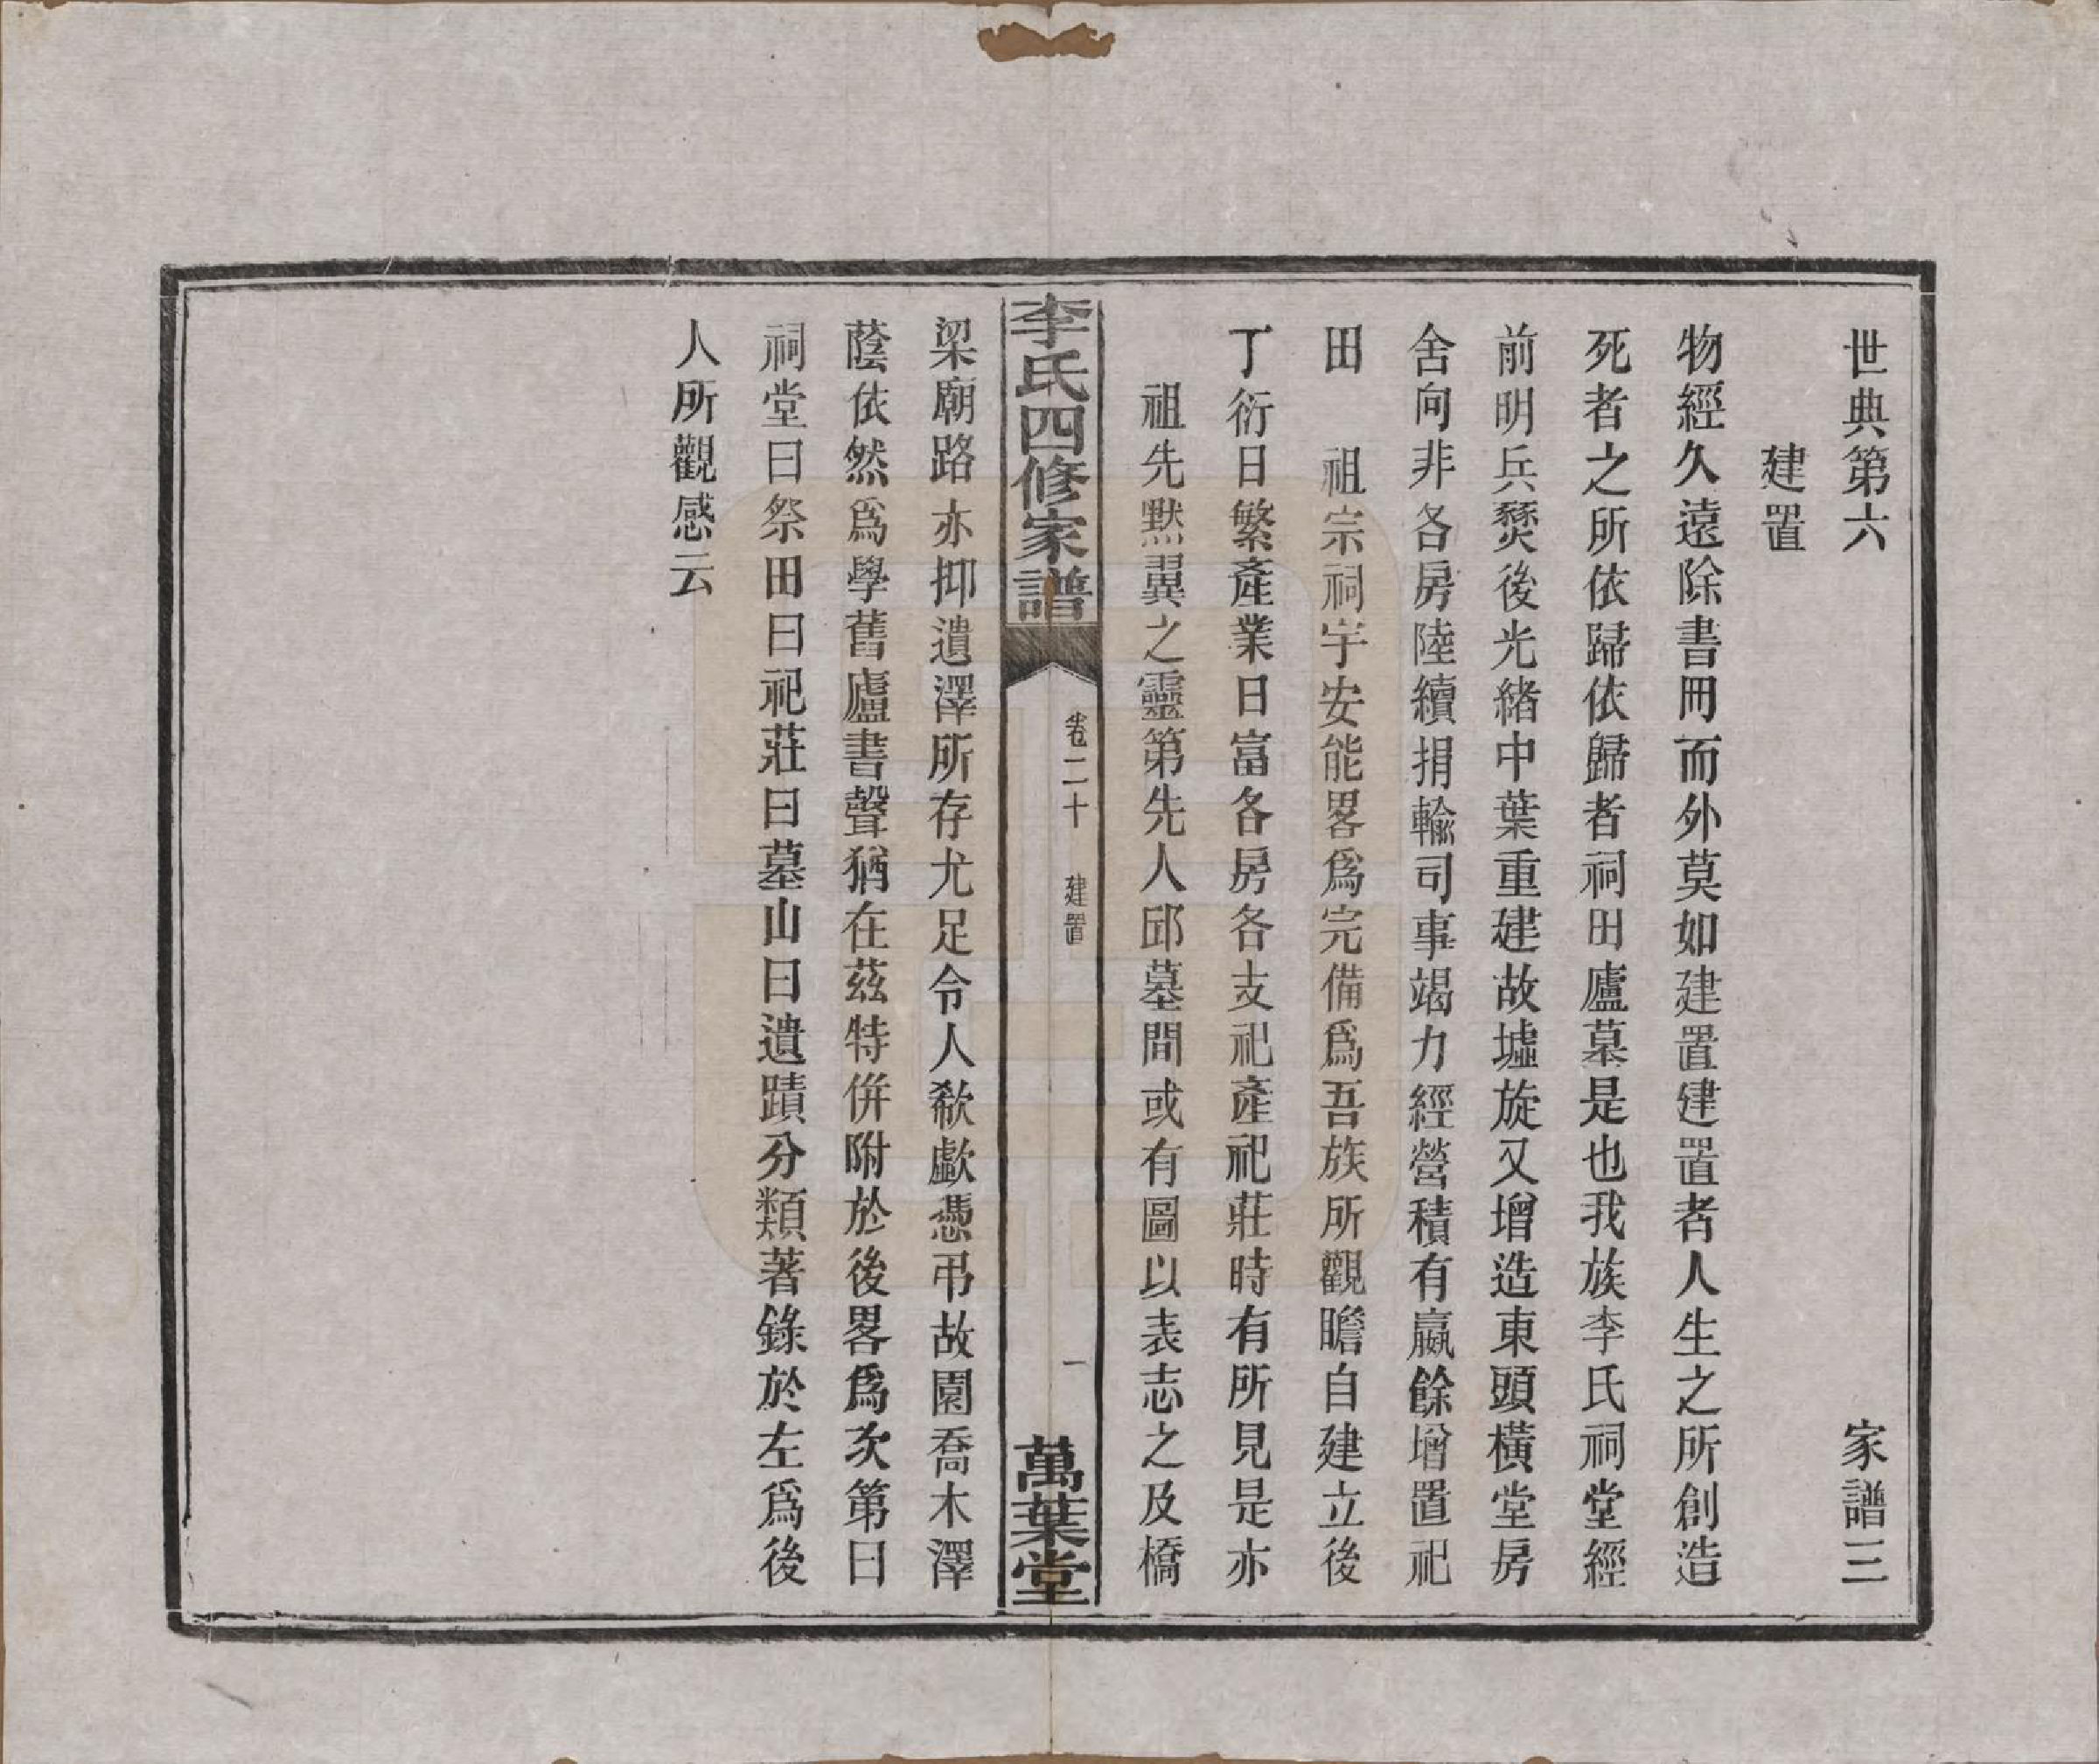 世典第六 家譜三
建置
物經久遠除書冊而外莫如建置建置者人生之所創造
死者之所依歸依歸者祠田廬墓是也我族李氏祠堂經
前明兵燹後光緒中葉重建故墟旋又增造東頭橫堂房
舍向非各房陸續捐輸司事竭力經營積有嬴餘增置祀
田 祖宗祠宇安能畧爲完備爲吾族所觀瞻自建立後
丁衍日繁產業日富各房各支祀產祀莊時有所見是亦
祖先默翼之靈第先人邱墓間或有圖以表志之及橋
李氏四修家譜 卷二十 建置 一 萬葉堂
梁廟路亦抑遺澤所存尤足令人欷歔憑弔故園喬木澤
蔭依然爲學舊廬書聲猶在茲特併附於後畧爲次第曰
祠堂曰祭田曰祀莊曰墓山曰遺蹟分類著錄於左爲後
人所觀感云